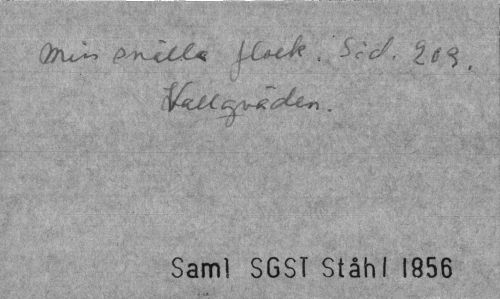 Min snälla flock. Sid. 209.
Vallqväden.
Saml SGST Ståhl 1856